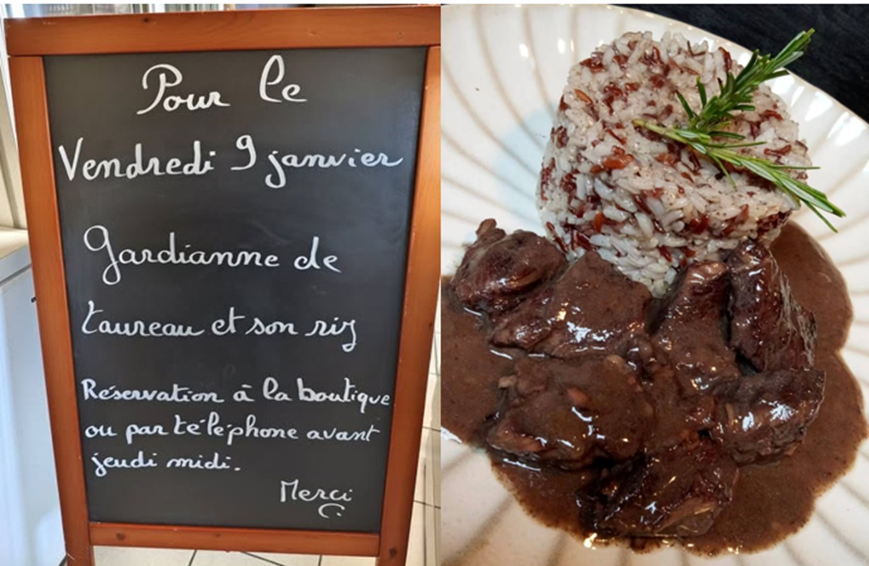 Pour le
Vendredi 9 janvier
Gardianne de
taureau et son riz
Réservation à la boutique
ou par téléphone avant
jeudi midi.
Merci